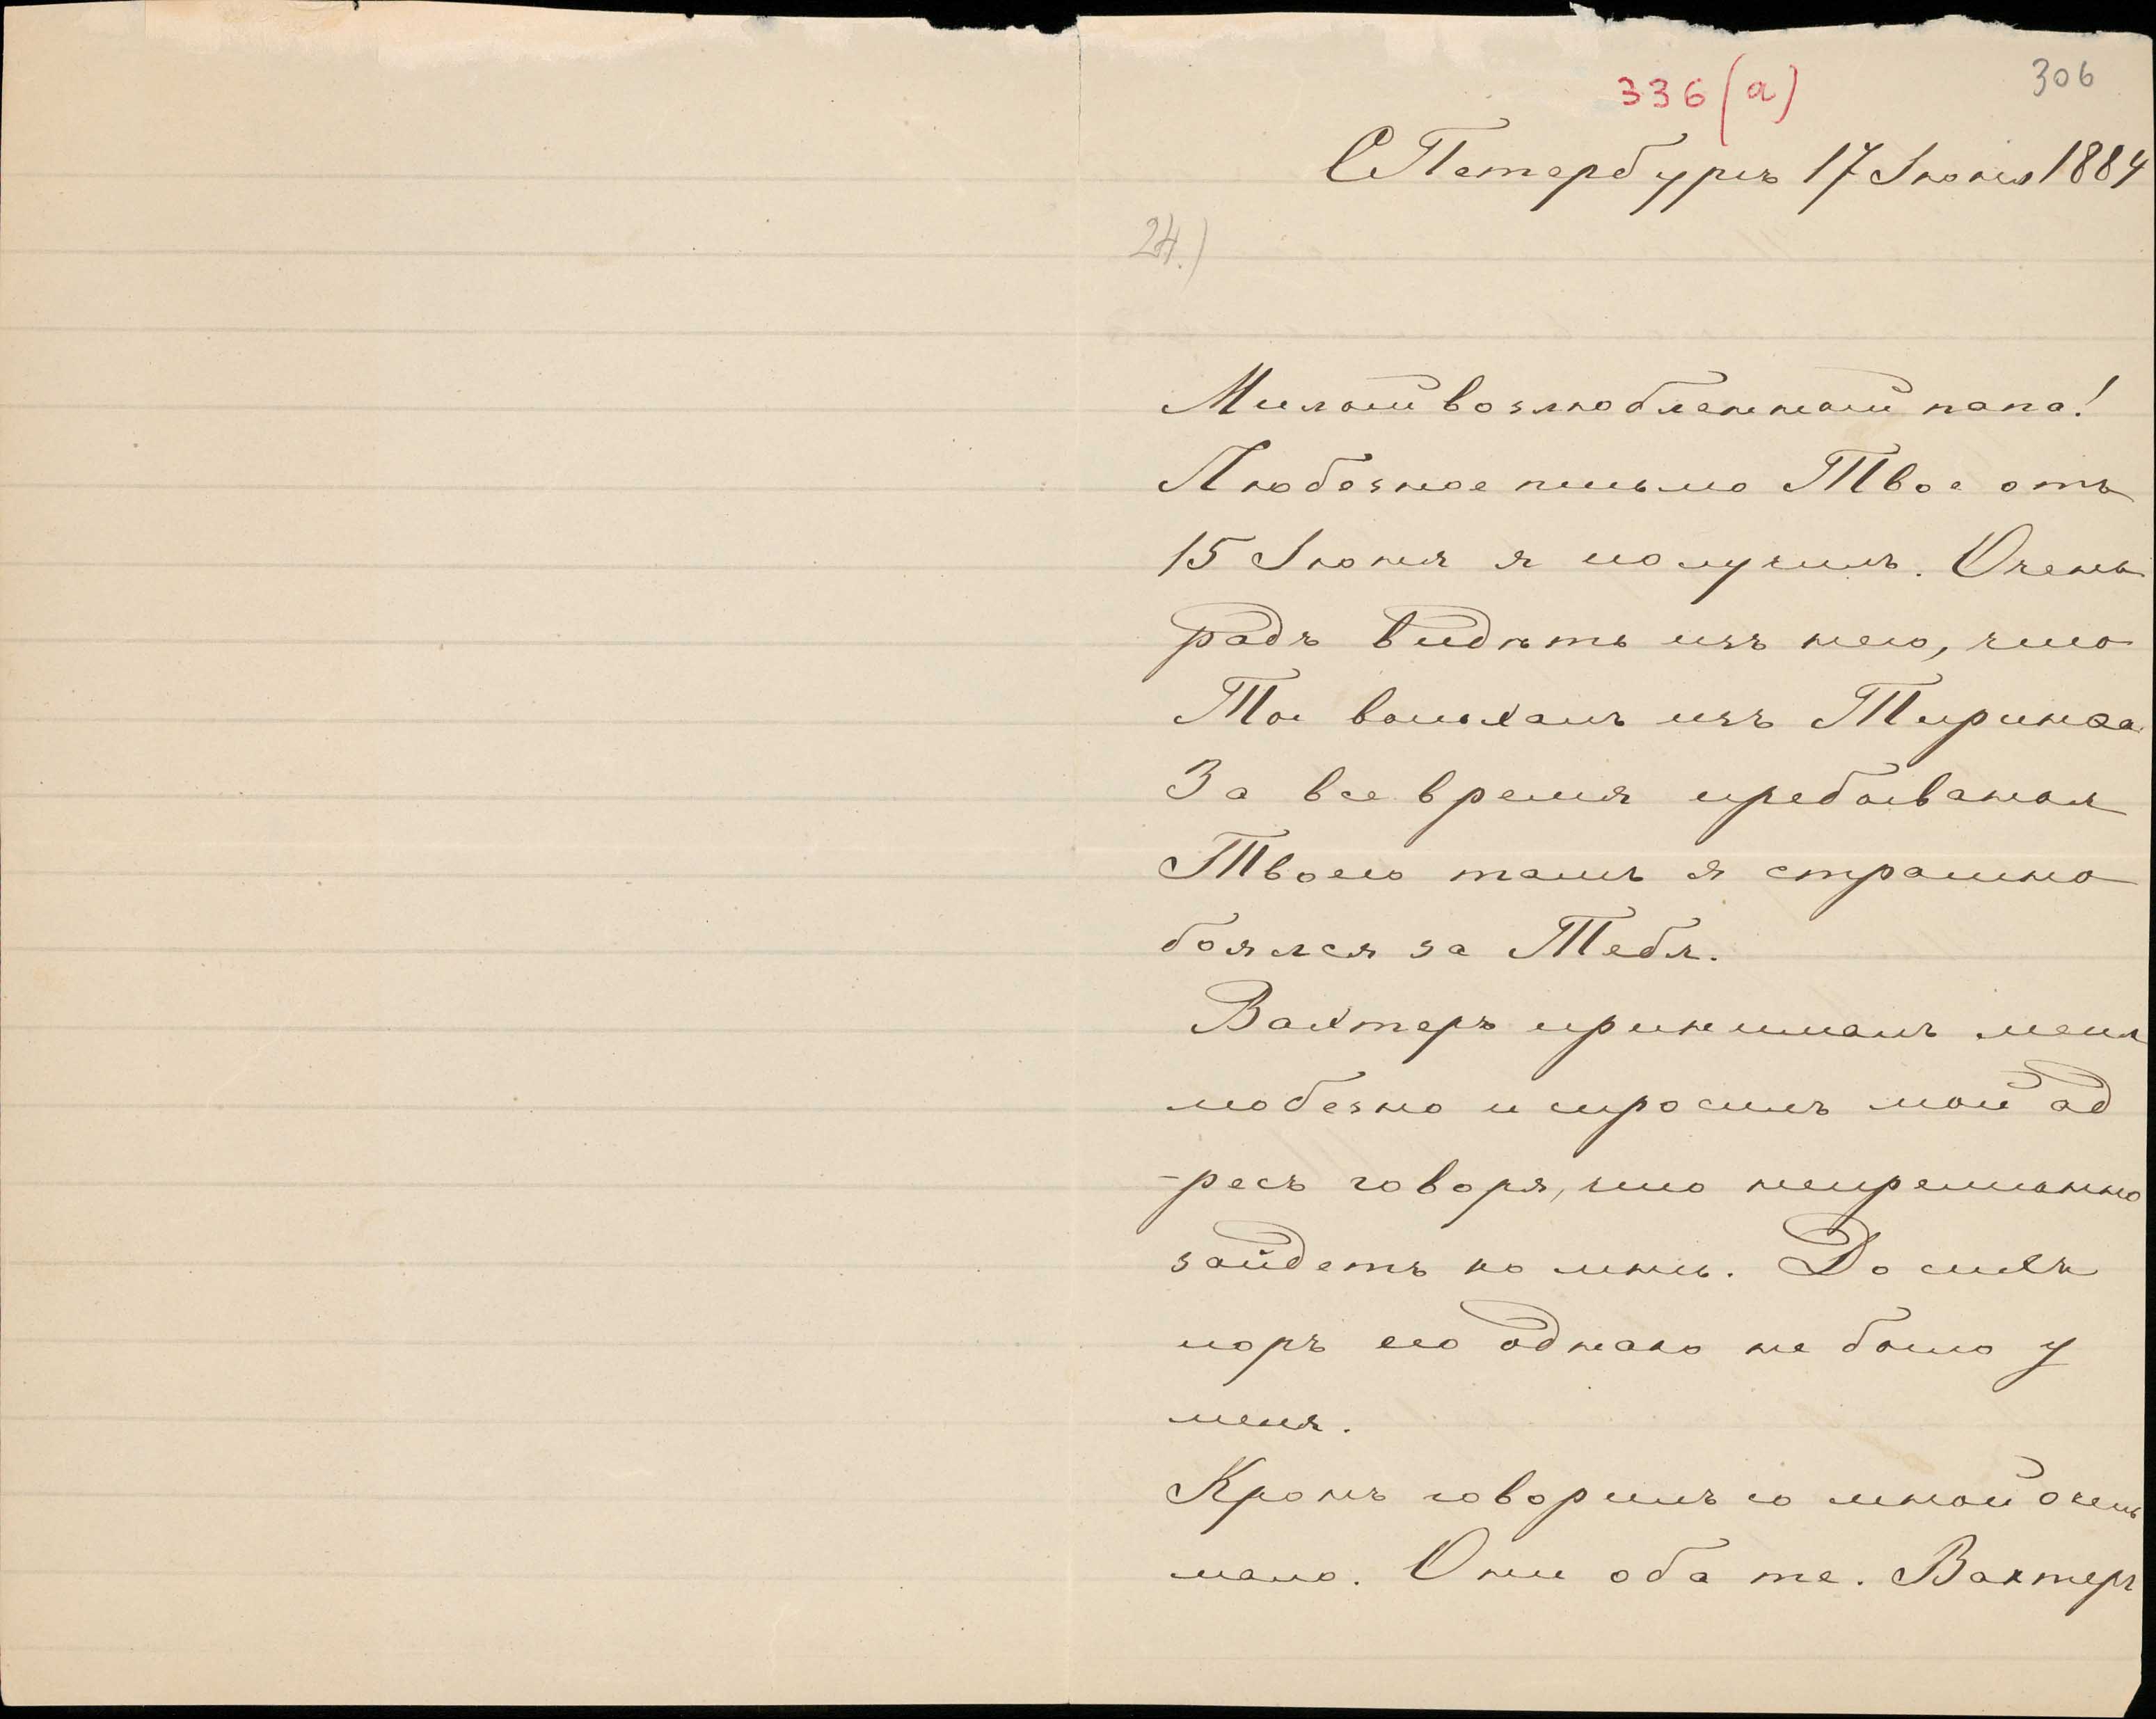 336(а)
306
СПетербургъ 17 Іюня 1884
24.)
Милый возлюбленный папа!
Любезное письмо Твое отъ
15 Іюня я получилъ. Очень
радъ видѣть изъ него, что
Ты выѣхалъ изъ Тиринѳа.
За все время пребыванія
Твоего тамъ я страшно
боялся за Тебя.
Вахтеръ принималъ меня
любезно и спросилъ мой ад
-ресъ говоря, что непременно
зайдетъ ко мнѣ. До сихъ
поръ его однако не было у
меня.
Кронъ говорилъ со мной очень
мало. Они оба те. Вахтеръ